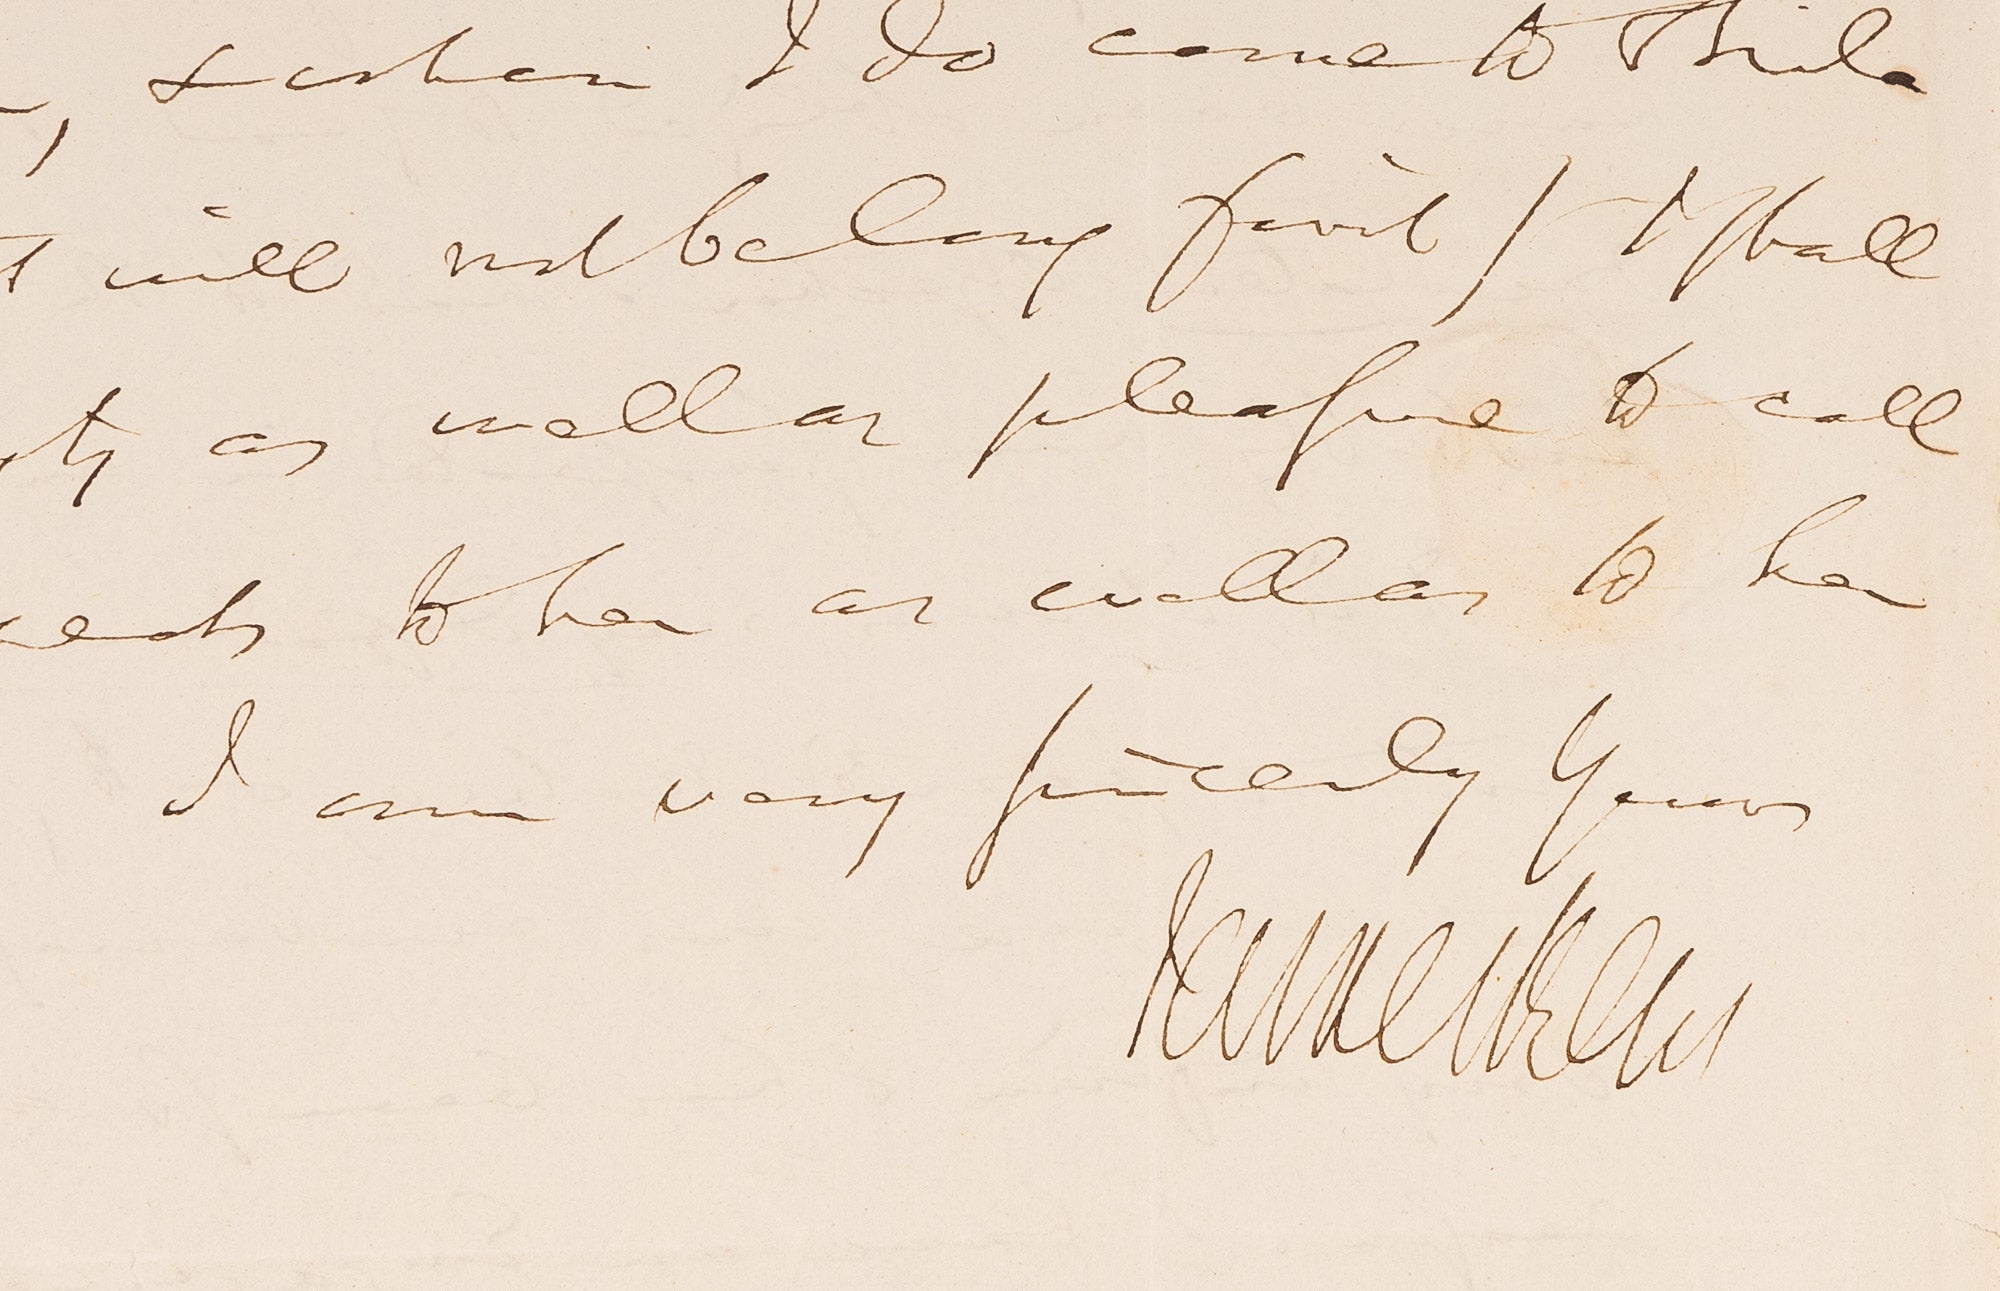 , & when I do come to Phila
will not be long first / I shall
as well as pleasure to call
to her as well as to her
I am very sincerely Yours